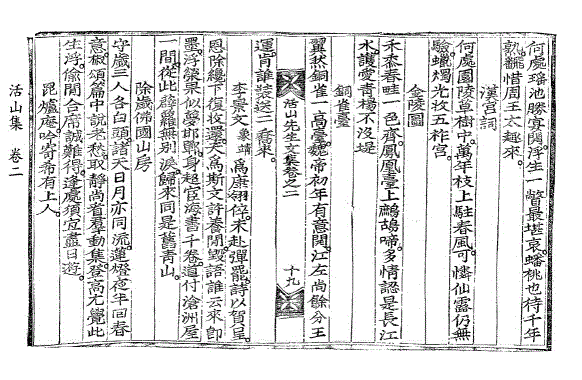 何處瑤池勝宴開浮生一瞥最堪哀蟠桃也待千年
熟翻惜周王太趣來
漢宮詞
何處園陵草樹中萬年枝上駐春風可憐仙露仍無
驗蠟燭光收五柞宮
金陵圖
禾黍春畦一色齊鳳凰臺上鷓鴣啼多情認是長江
水護愛青楊不沒堤
銅雀臺
翼然銅雀一高臺魏帝初年有意開江左尚餘分王
活山先生文集卷之二
十九
運肯誰裝送二喬來
李景文象靖爲康翎倅未赴彈罷詩以賀呈
恩除纔下復收還天爲斯文許養閒毀語誰云來卽
墨浮榮果似夢邯鄲身超宦海書千卷道付滄洲屋
一間從此薜蘿無別淚歸來同是舊靑山
除歲佛國山房
守歲三人各白頭諸天日月亦同流蓮燈夜半回春
意椒頌篇中說老愁取靜尚省羣動集登高尤覺此
生浮偸閒合席誠難得逢處須宜盡日遊
毘爐庵吟寄希有上人
活山集 卷二